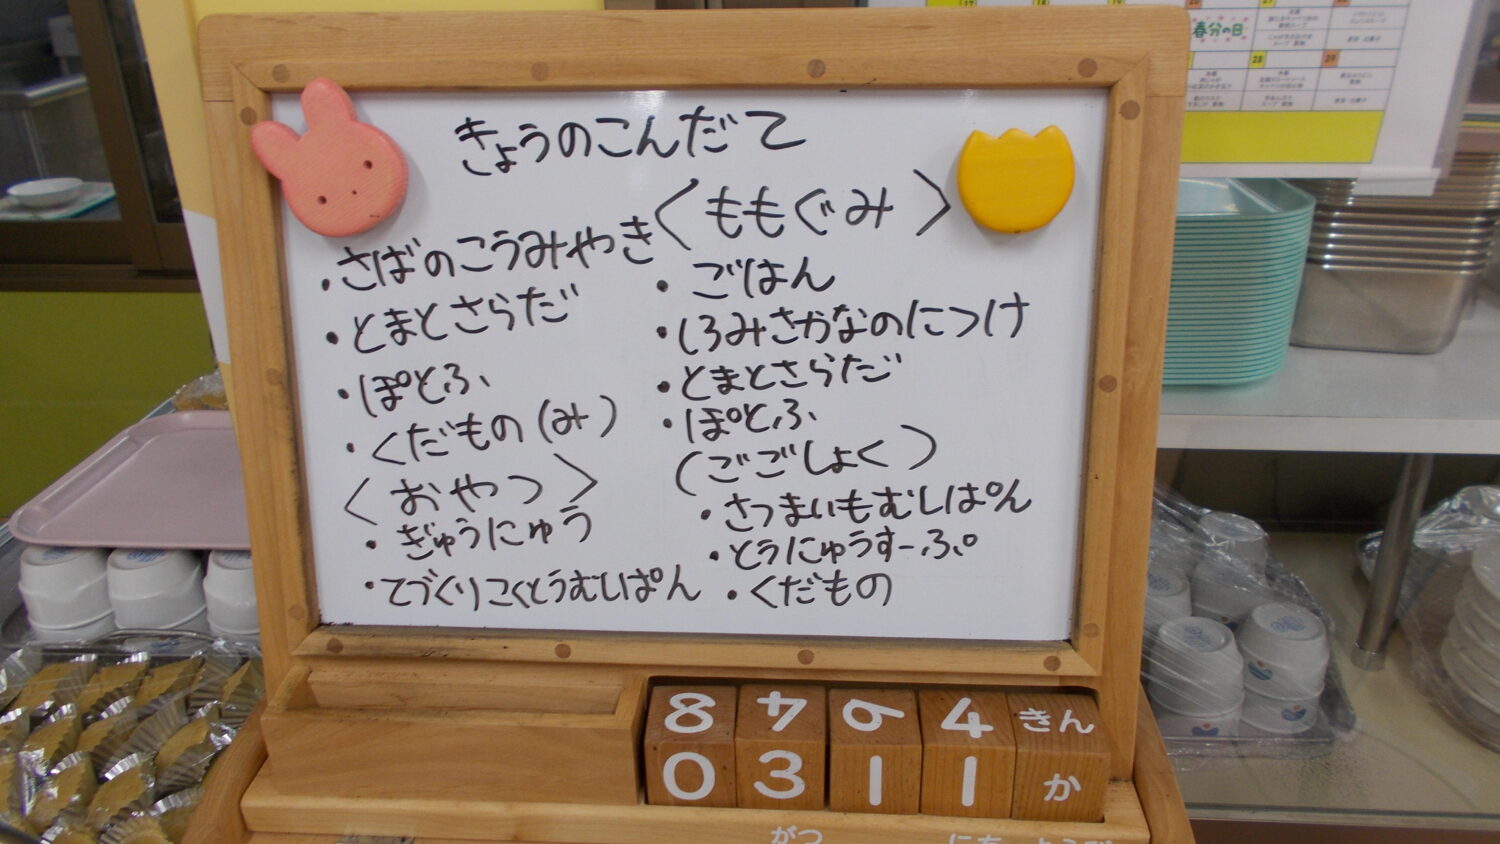 きょうのこんだて
・さばのこうみやき
・とまとさらだ
・ぽとふ
・くだもの(み)
<おやつ>
・ぎゅうにゅう
・てづくりこくとうむしぱん
<ももぐみ>
・ごはん
・しろみさかなのにつけ
・とまとさらだ
・ぽとふ
(ごごしょく)
・さつまいもむしぱん
・とうにゅうすーぷ
・くだもの
8 4 6 4 きん
0 3 1 1 か
がつ
春分の日
28
29